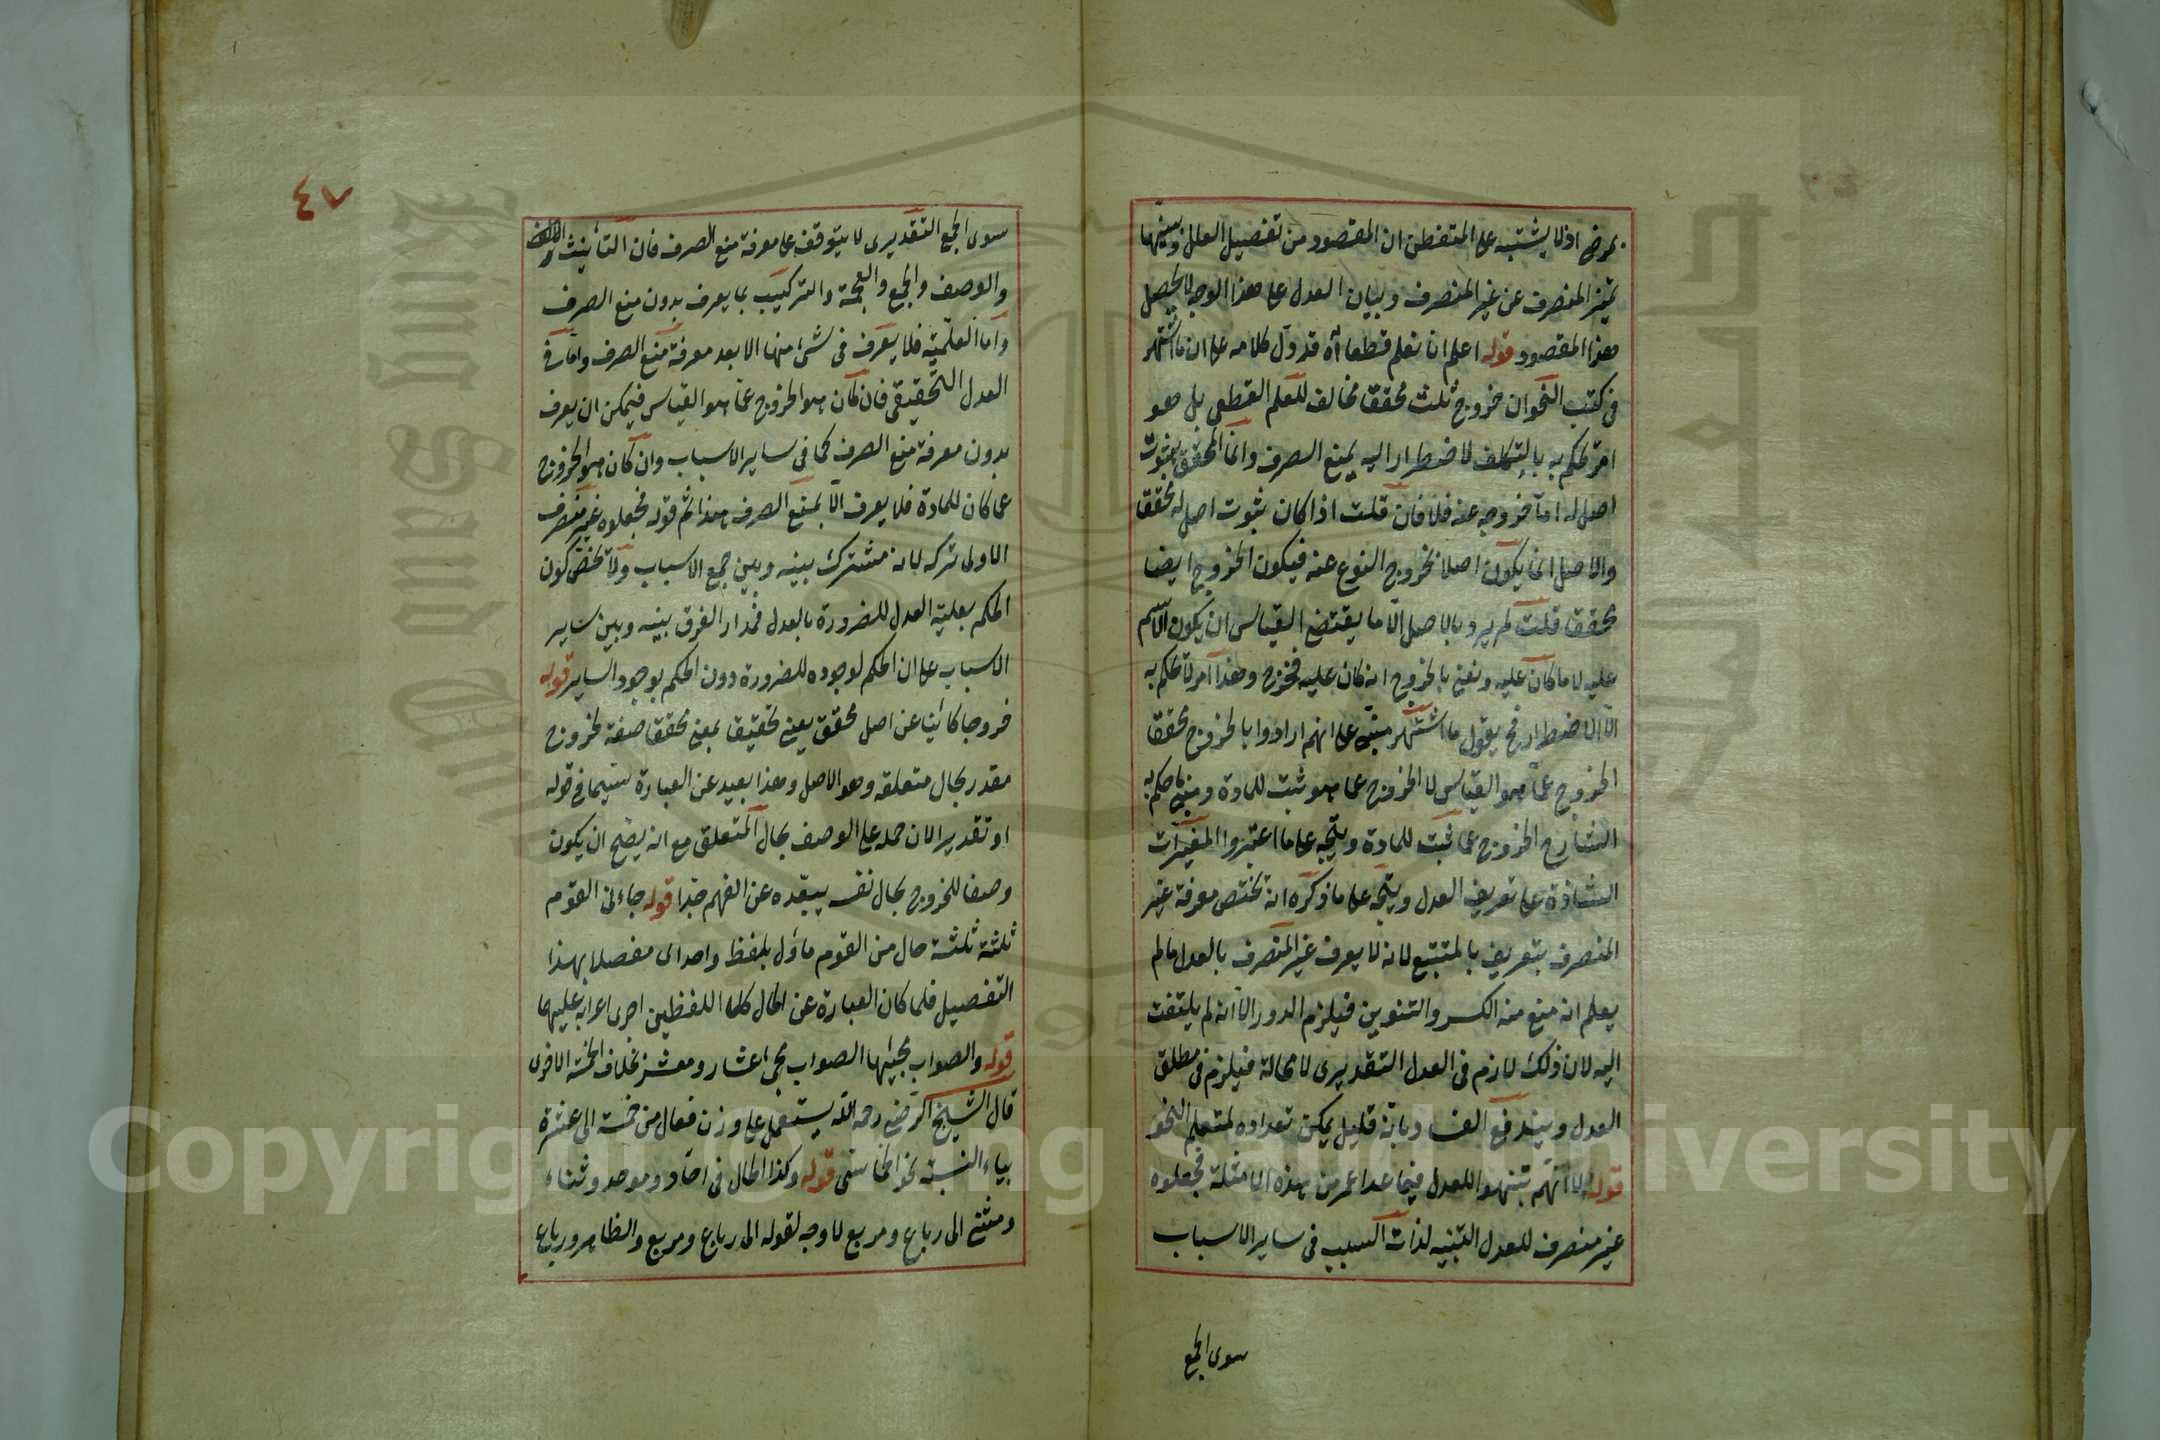 بمرضي اذ لا يشتبه على المتفطن ان المقصود من تفصيل العلل وتبيينها
تميز المنصرف عن غير المنصرف وبيان العدل على هذا الوجه لا يحصل
هذا المقصود قوله اعلم انا نعلم قطعا اه قد دل كلامه على ان ما اشتهر
في كتب النحو ان خروج ثلث محققا مخالف للعلم القطعي بل هو
امر يحكم به بالتكلف لاضطرار اليه بمنع الصرف وانما المحقق ثبوت
اصل له اما خروجه عنه فلا فان قلت اذا كان ثبوت اصل له محققا
والاصل انما يكون اصلا بخروج النوع عنه فيكون الخروج ايضا
محققا قلت لم يرد بالاصل الا ما يقتضي القياس ان يكون الاسم
عليه لا ما كان عليه ونعني بالخروج انه كان عليه فخرج وهذا امر لا يحكم به
الا لاضطرار فح يقول ما اشتهر مبني على انهم ارادوا بالخروج محققا
الخروج عما هو القياس لا الخروج عما هو ثبت للمادة ومبنى ما حكم به
الشارح الخروج عما ثبت للمادة ويتجه على ما اعتبروا المغيرات
الشاذة على تعريف العدل ويتجه على ما ذكره انه يختص معرفة غير
المنصرف بتعريف بالمتتبع لانه لا يعرف غير المنصرف بالعدل ما لم
يعلم انه منع منه الكسر والتنوين فيلزم الدور الا انه لم يلتفت
اليه لان ذلك لازم في العدل التقديري لا محالة فيلزم في مطلق
العدل ويندفع الفساد بانه قليل يمكن تعداده لمتعلم النحو
قوله الا انهم تنبهوا للعدل فيما عدا عمر من هذه الامثلة فجعلوه
غير منصرف للعدل التنبه لذات السبب في ساير الاسباب
سوى الجمع
٤٧
سوى الجمع التقديري لا يتوقف على معرفة منع الصرف فان التأنيث
والوصف والجمع والعجمة والتركيب مما يعرف بدون منع الصرف
واما العلمية فلا يعرف في شئ منها الا بعد معرفة منع الصرف واما في
العدل التحقيقي فان كان هو الخروج عما هو القياس فيمكن ان يعرف
بدون معرفة منع الصرف كما في ساير الاسباب وان كان هو الخروج
عما كان للمادة فلا يعرف الا بمنع الصرف هذا ثم قوله فجعلوه غير منصرف
الاولى تركه لانه مشترك بينه وبين جميع الاسباب ولا يختص كون
الحكم بعلية العدل للضرورة بالعدل فمدار الفرق بينه وبين ساير
الاسباب على ان الحكم لوجوده للضرورة دون الحكم بوجود الساير قوله
خروجا كائنا عن اصل محقق يعني تحقيقا بمعنى محققا صفة لخروج
مقدر بحال متعلقه وهو الاصل وهذا بعيد عن العبارة سيما في قوله
او تقديرا لان حمله على الوصف بحال المتعلق مع انه يصح ان يكون
وصفا للخروج بحال نفسه يبعده عن الفهم جدا قوله جاءني القوم
ثلثة ثلثة حال من القوم مأول بلفظ واحد اى مفصلا بهذا
التفصيل فلما كان العبارة عن الحال كلا اللفظين اجرى اعرابه عليهما
قوله والصواب مجيئها الصواب مجئ اعشار ومعشر بخلاف الخمسة الاخرى
قال الشيخ الرضي رحمه الله يستعمل على وزن فعال من خمسة الى عشرة
بياء النسبة نحو الخماسي قوله وكذا الحال في احاد وموحد وثناء
ومثنى الى رباع ومربع لا وجه لقوله الى رباع ومربع والظاهر ورباع
Copyright © King Saud University